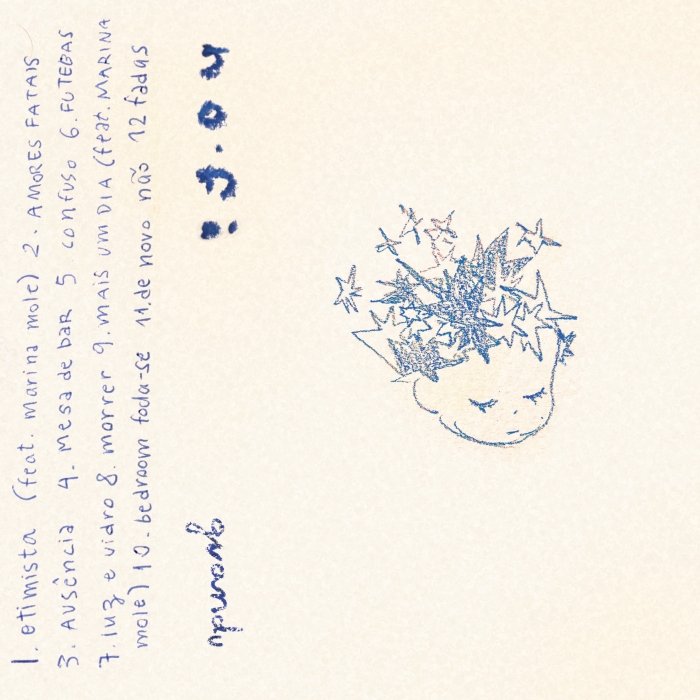 1. otimista (feat. marina mole) 2. AMORES FATAIS
3. AUSÊNCIA 4. Mesa de bar 5. confuso 6.
7. luz e vidro 8. morrer 9. mais um DIA (feat. MARINA
mole) 10. bedroom foda-se 11. de novo não 12 fadas